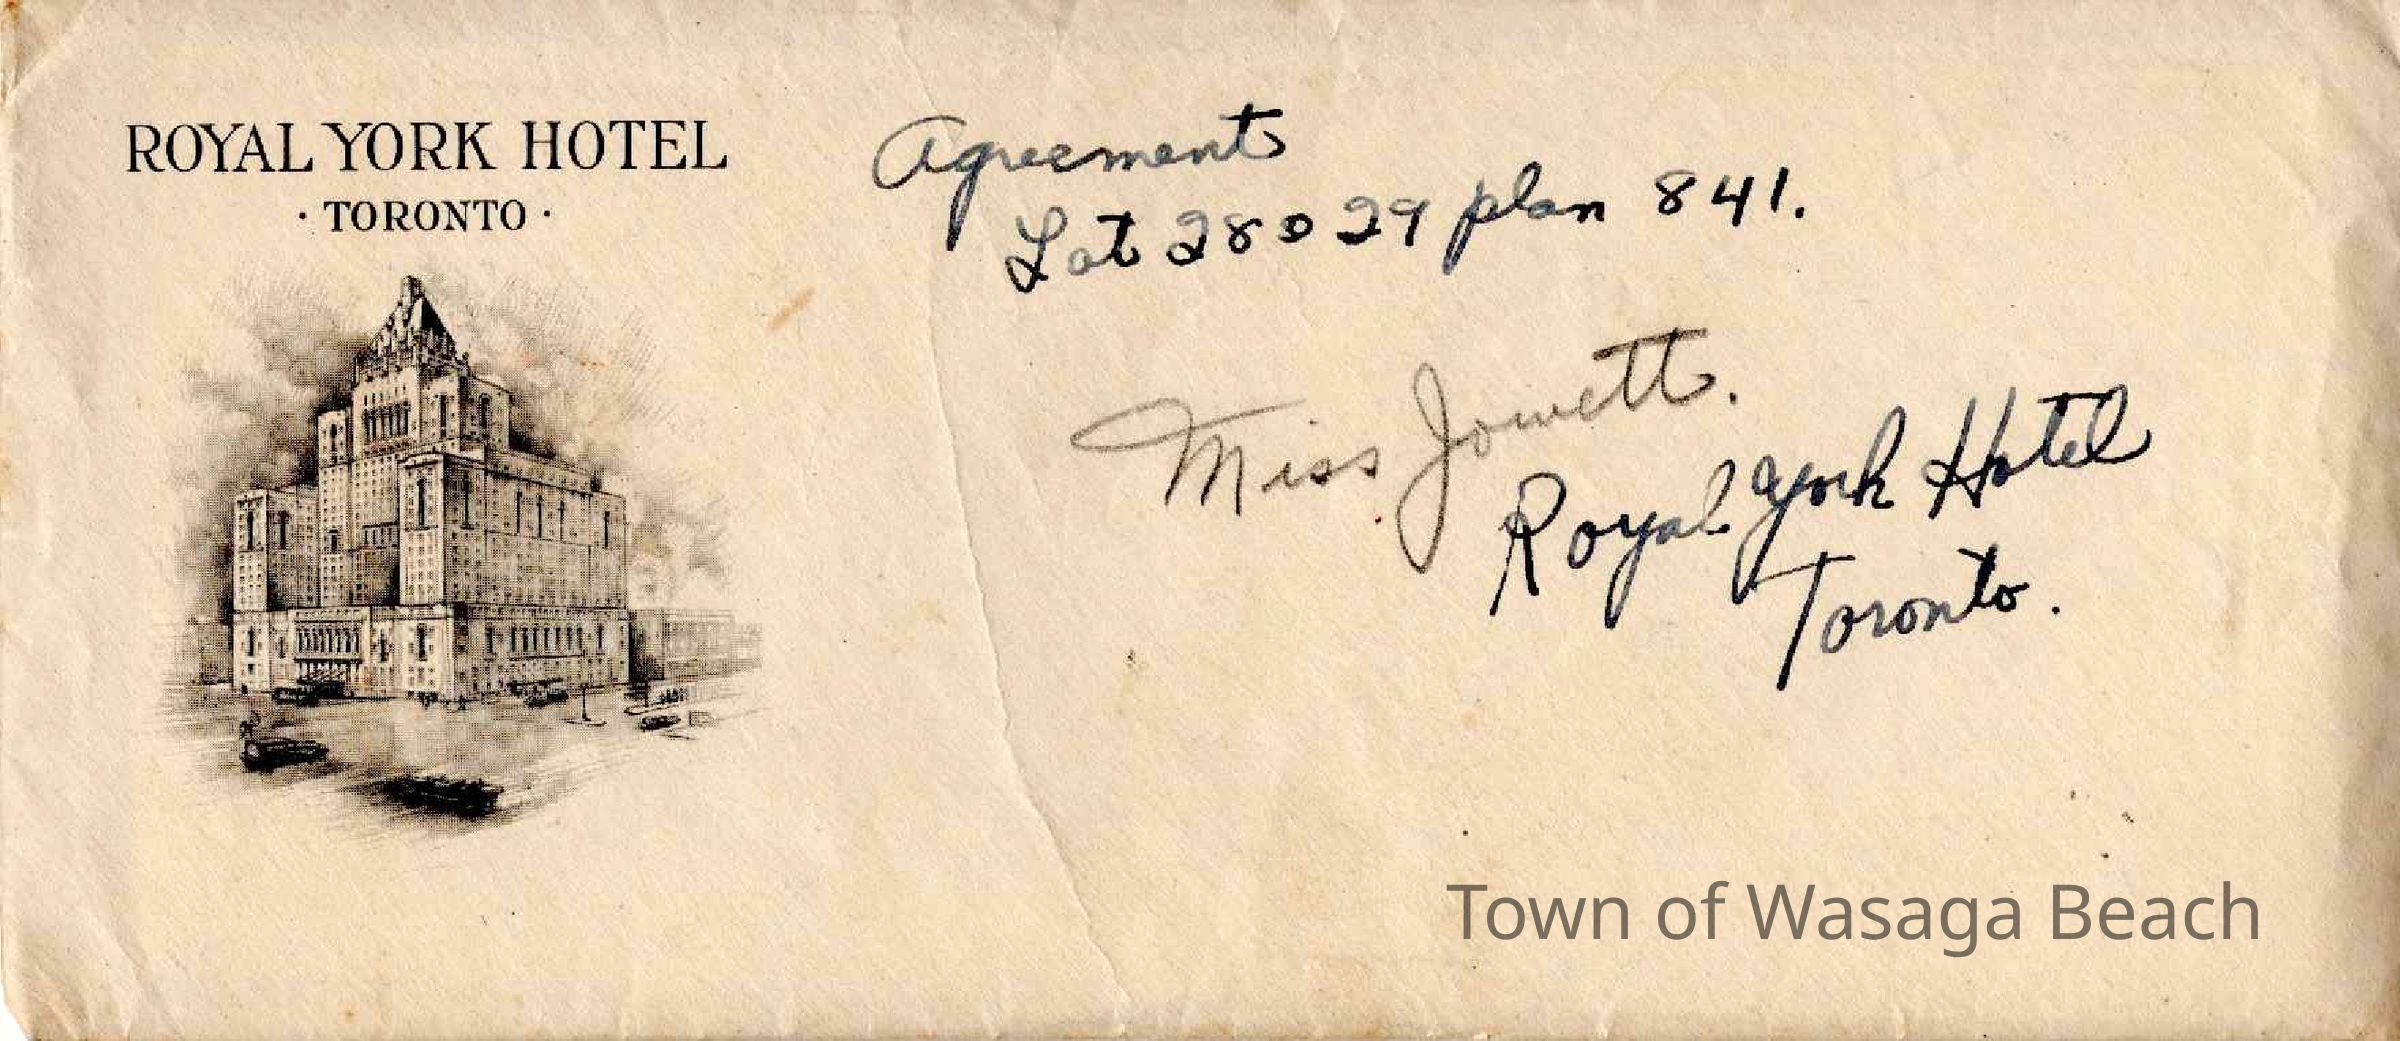 ROYAL YORK HOTEL
· TORONTO ·
Agreement
Lot 28 & 29 plan 841.
Miss Jowett.
Royal York Hotel
Toronto.
Town of Wasaga Beach